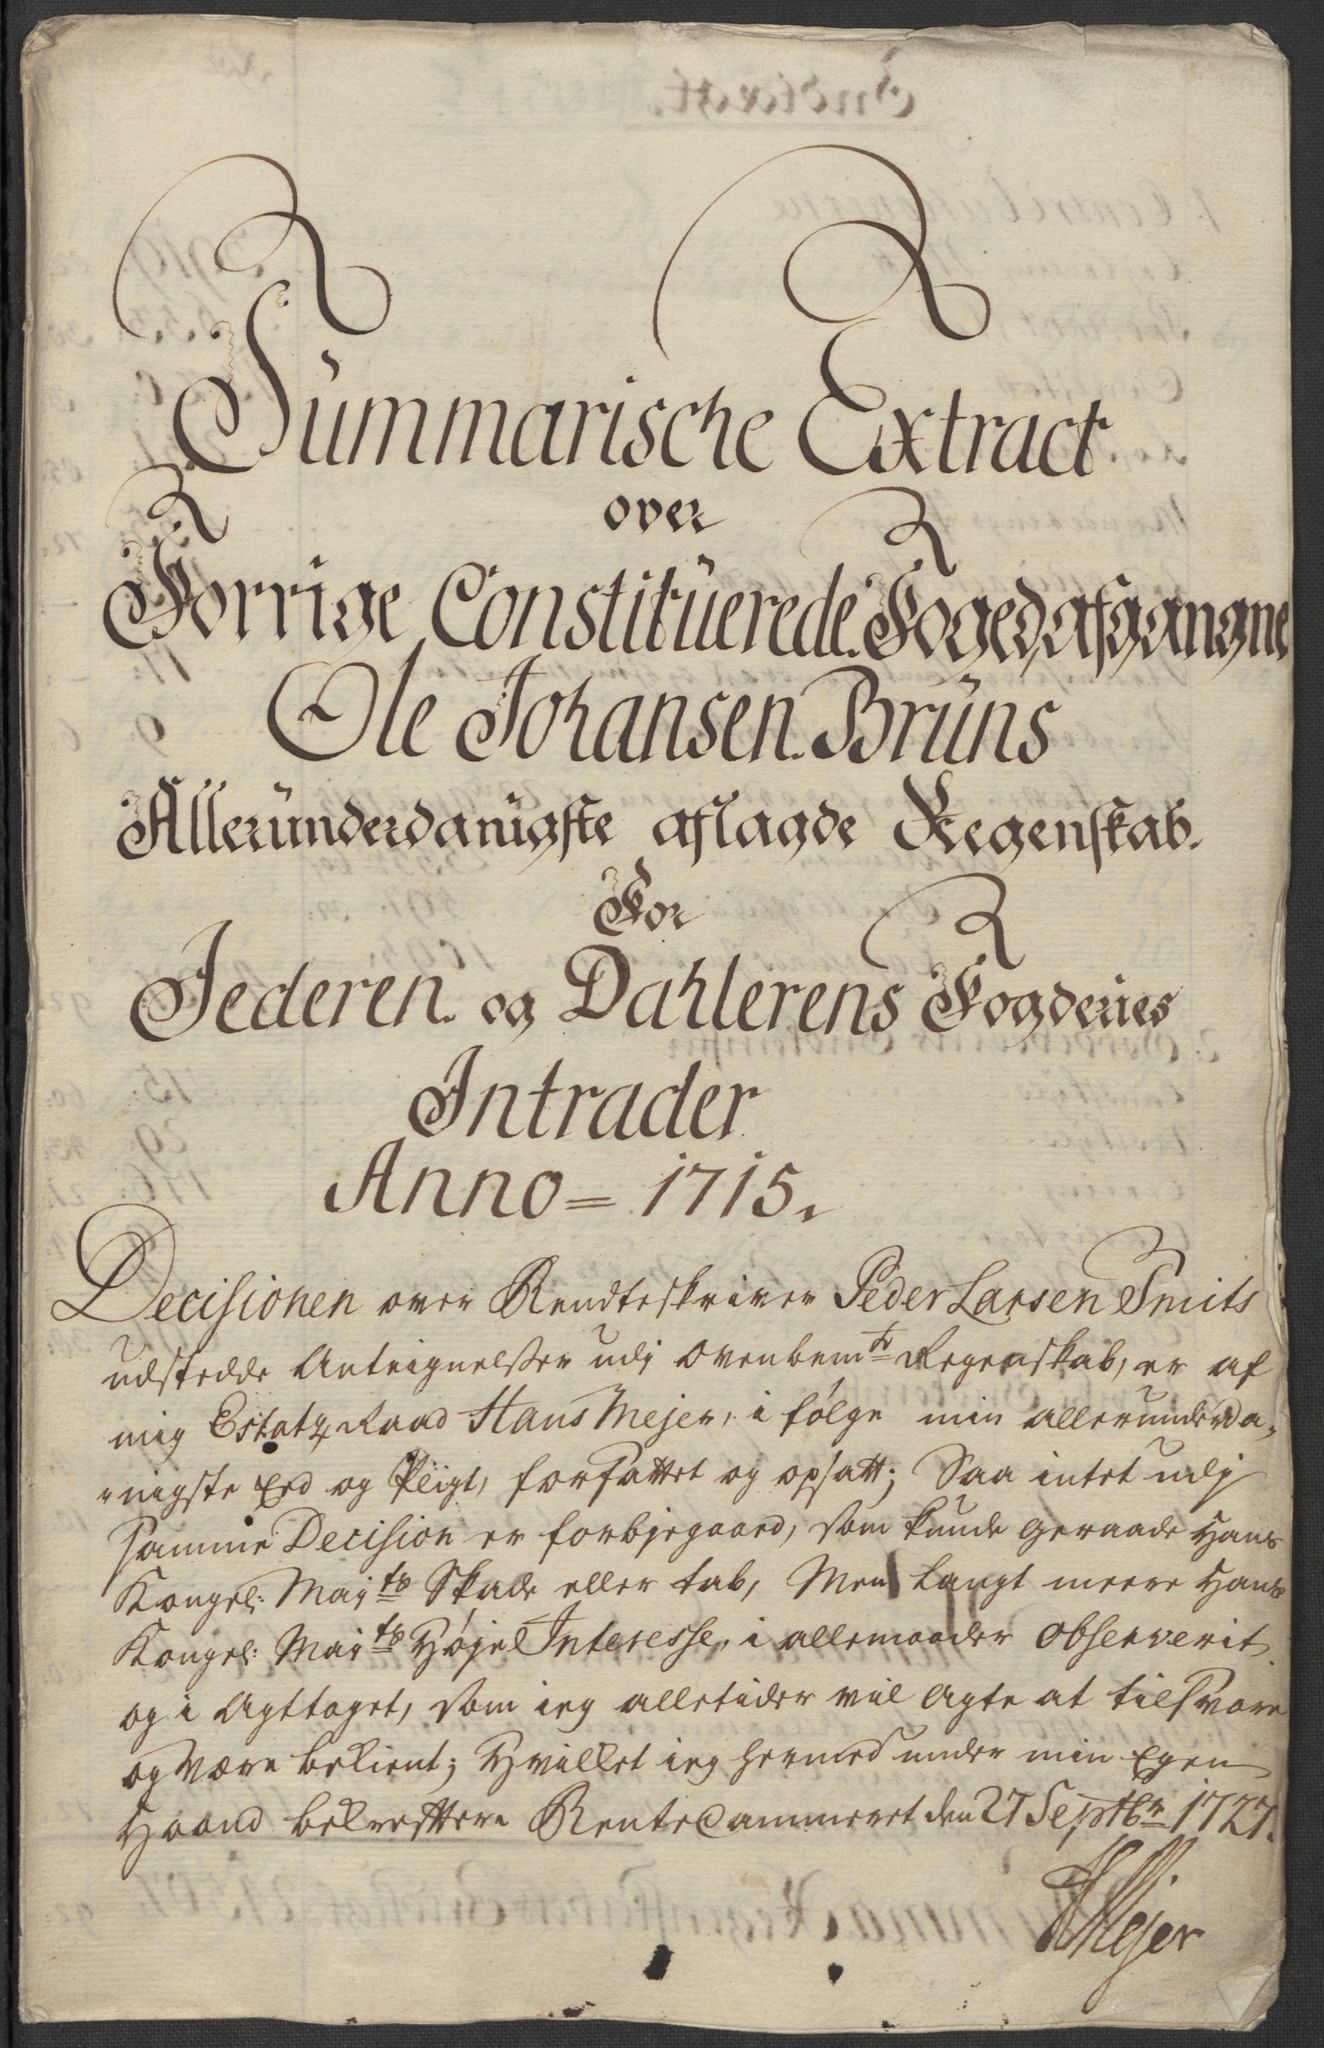 Summarische Extract
over
Forrige Constituerede Foged, afgangne
Ole Johansen Bruns
Alleründerdanigste aflagde Regenskab.
For
Jederen og Dahlerens Fogderies
Intrader
Anno = 1715.
Decisionen over Rendteskriver Peder Larsen Smits
udstedde Anteignelsser udj ovenbemte Regenskab, er af
mig Estatz Raad Hans Mejer, i følge min allerunderda-
nigste Eed og Pligt, forfattet og opsatt; Saa intet udj
samme Decision er forbjegaaed, som kunde geraade Hans
Kongel: Maytz Skade eller tab, Men langt meere Hans
Kongel: Maytz Høje Interesse, i allemaader observerit,
og i Agttaget, som ieg alletider vil Agte at tilsvare
og Være bekient; Hvilket ieg hermed under min Egen
Haand bekreftter Rente Cammeret den 27 Septbr 1727.
HMejer